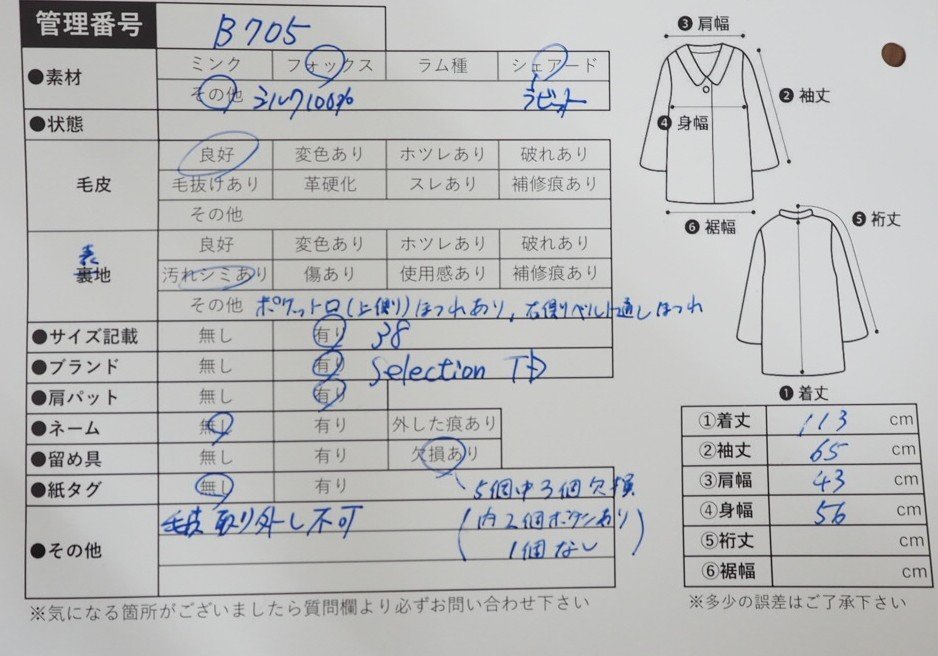 管理番号 B705
●素材 ミンク フォックス ラム種 シェアード
その他 シルク100% ラビット
●状態
毛皮 良好 変色あり ホツレあり 破れあり
毛抜けあり 革硬化 スレあり 補修痕あり
その他
表
裏地 良好 変色あり ホツレあり 破れあり
汚れシミあり 傷あり 使用感あり 補修痕あり
その他 ポケット口(上側)ほつれあり、右側ベルト通しほつれ
●サイズ記載 無し 有り 38
●ブランド 無し 有り Selection
●肩パット 無し 有り
●ネーム 無し 有り 外した痕あり
●留め具 無し 有り 欠損あり
●紙タグ 無し 有り 5個中3個欠損
●その他 毛皮取り外し不可 (内2個ボタンあり
1個なし)
※気になる箇所がございましたら質問欄より必ずお問い合わせ下さい
❸肩幅
❷袖丈
❹身幅
❻裾幅
❺裄丈
❶着丈
①着丈 113 cm
②袖丈 65 cm
③肩幅 43 cm
④身幅 56 cm
⑤裄丈 cm
⑥裾幅 cm
※多少の誤差はご了承下さい